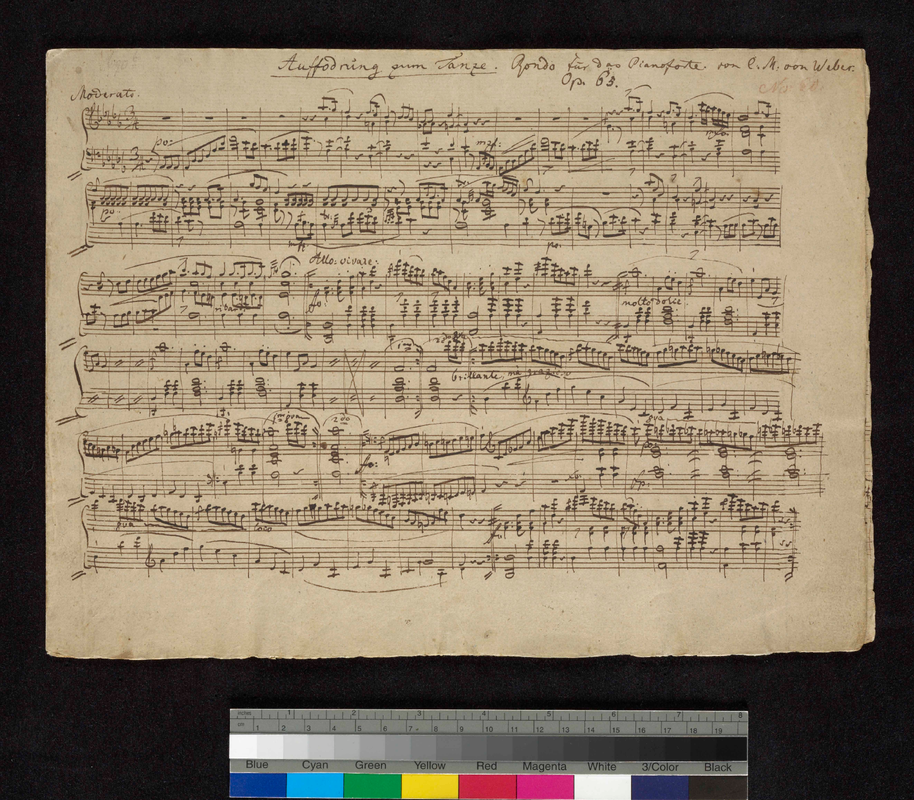 Auffodrung zum Tanze. Rondo für das Pianoforte. von C. M. von Weber.
Op. 65.
Moderato.
po:
mf:
po:
mf:
po:
Allo: vivace:
fo:
molto dolce:
brillante. ma grazioso
1ma
2da
8va
fo:
fp:
8va
loco
fo:
inches 1 2 3 4 5 6 7 8
cm 1 2 3 4 5 6 7 8 9 10 11 12 13 14 15 16 17 18 19
Blue Cyan Green Yellow Red Magenta White 3/Color Black